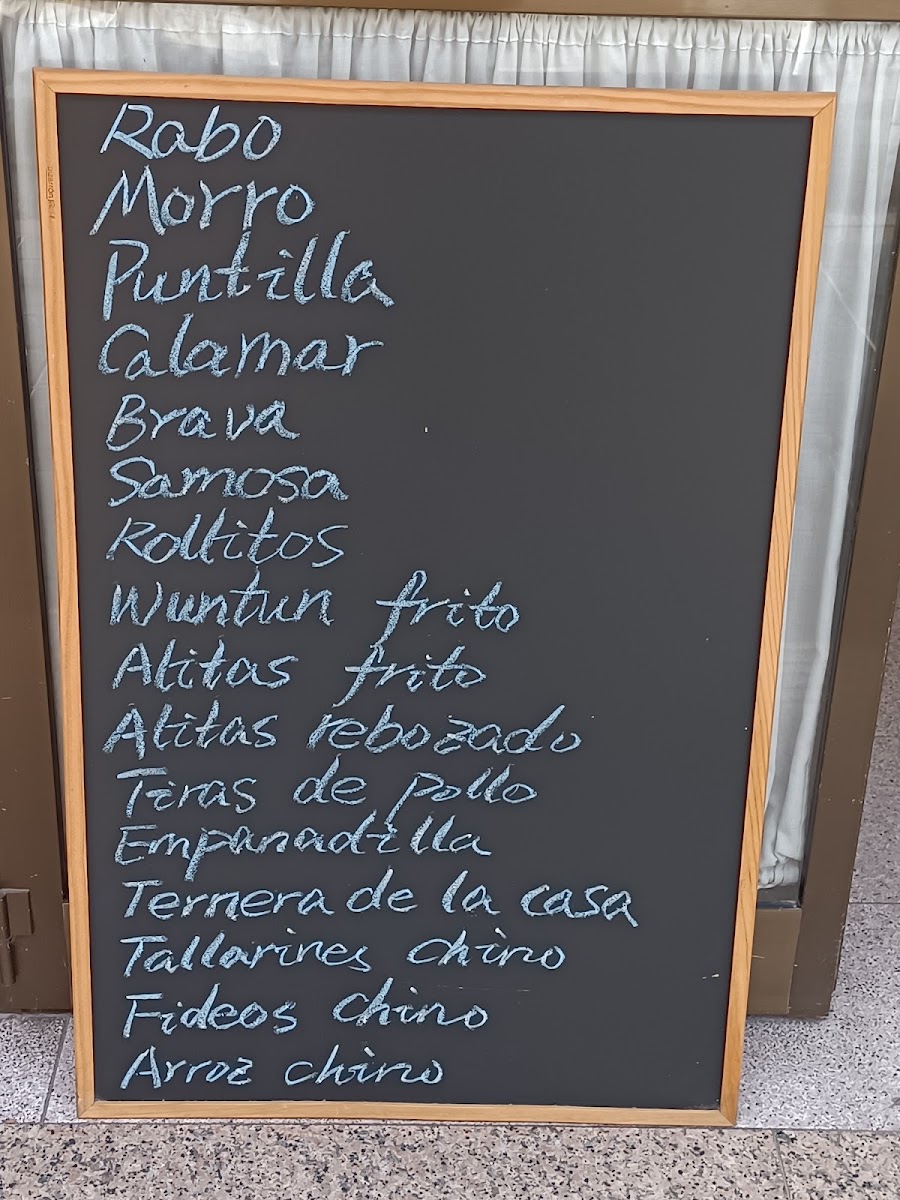 Rabo
Morro
Puntilla
Calamar
Brava
Samosa
Rollitos
Wuntun frito
Alitas frito
Alitas rebozado
Tiras de pollo
Empanadilla
Ternera de la casa
Tallarines chino
Fideos chino
Arroz chino